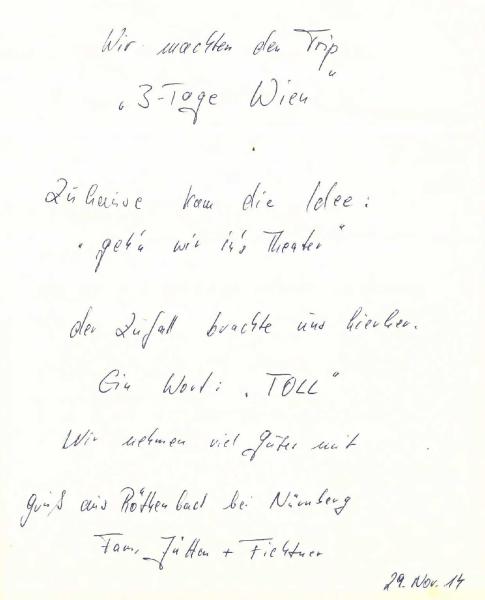 Wir machten den Trip
„3-Tage Wien"
Zuhause kam die Idee:
"geh'n wir in's Theater"
der Zufall brachte uns hierher.
Ein Wort: „TOLL"
Wir nehmen viel Gutes mit
Gruß aus Röthenbach bei Nürnberg
Fam. + Fichtner
29. Nov. 14